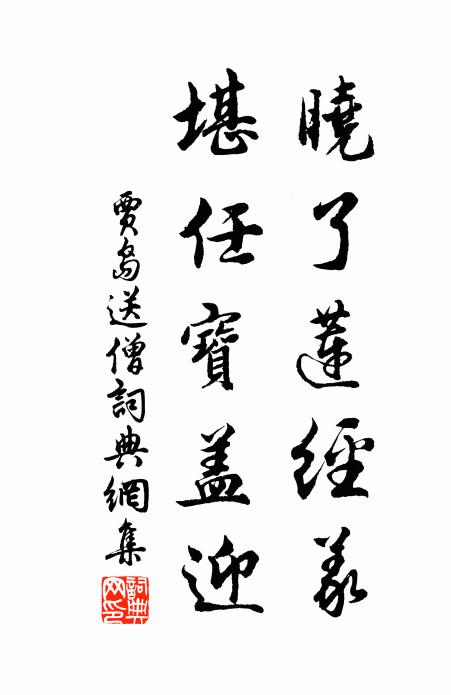 曉了蓮經義
堪任寶蓋迎
賈島送僧詞典網集
詞典网印